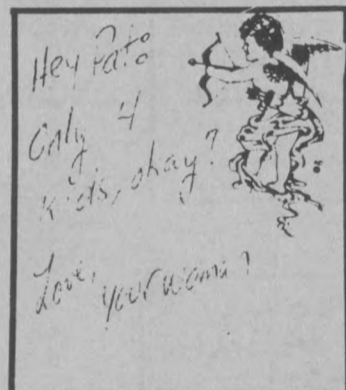 Hey Pat:
Only 4
kids, okay?
Love,
your